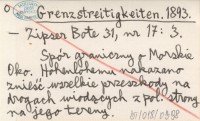 Grenzstreitigkeiten. 1893.
– Zipser Bote 31, nr 17: 3.
Spór graniczny o Morskie
Oko. Hohenlohemu nakazano
znieść wszelkie przeszkody na
drogach wiodących z pol. strony
na jego tereny.